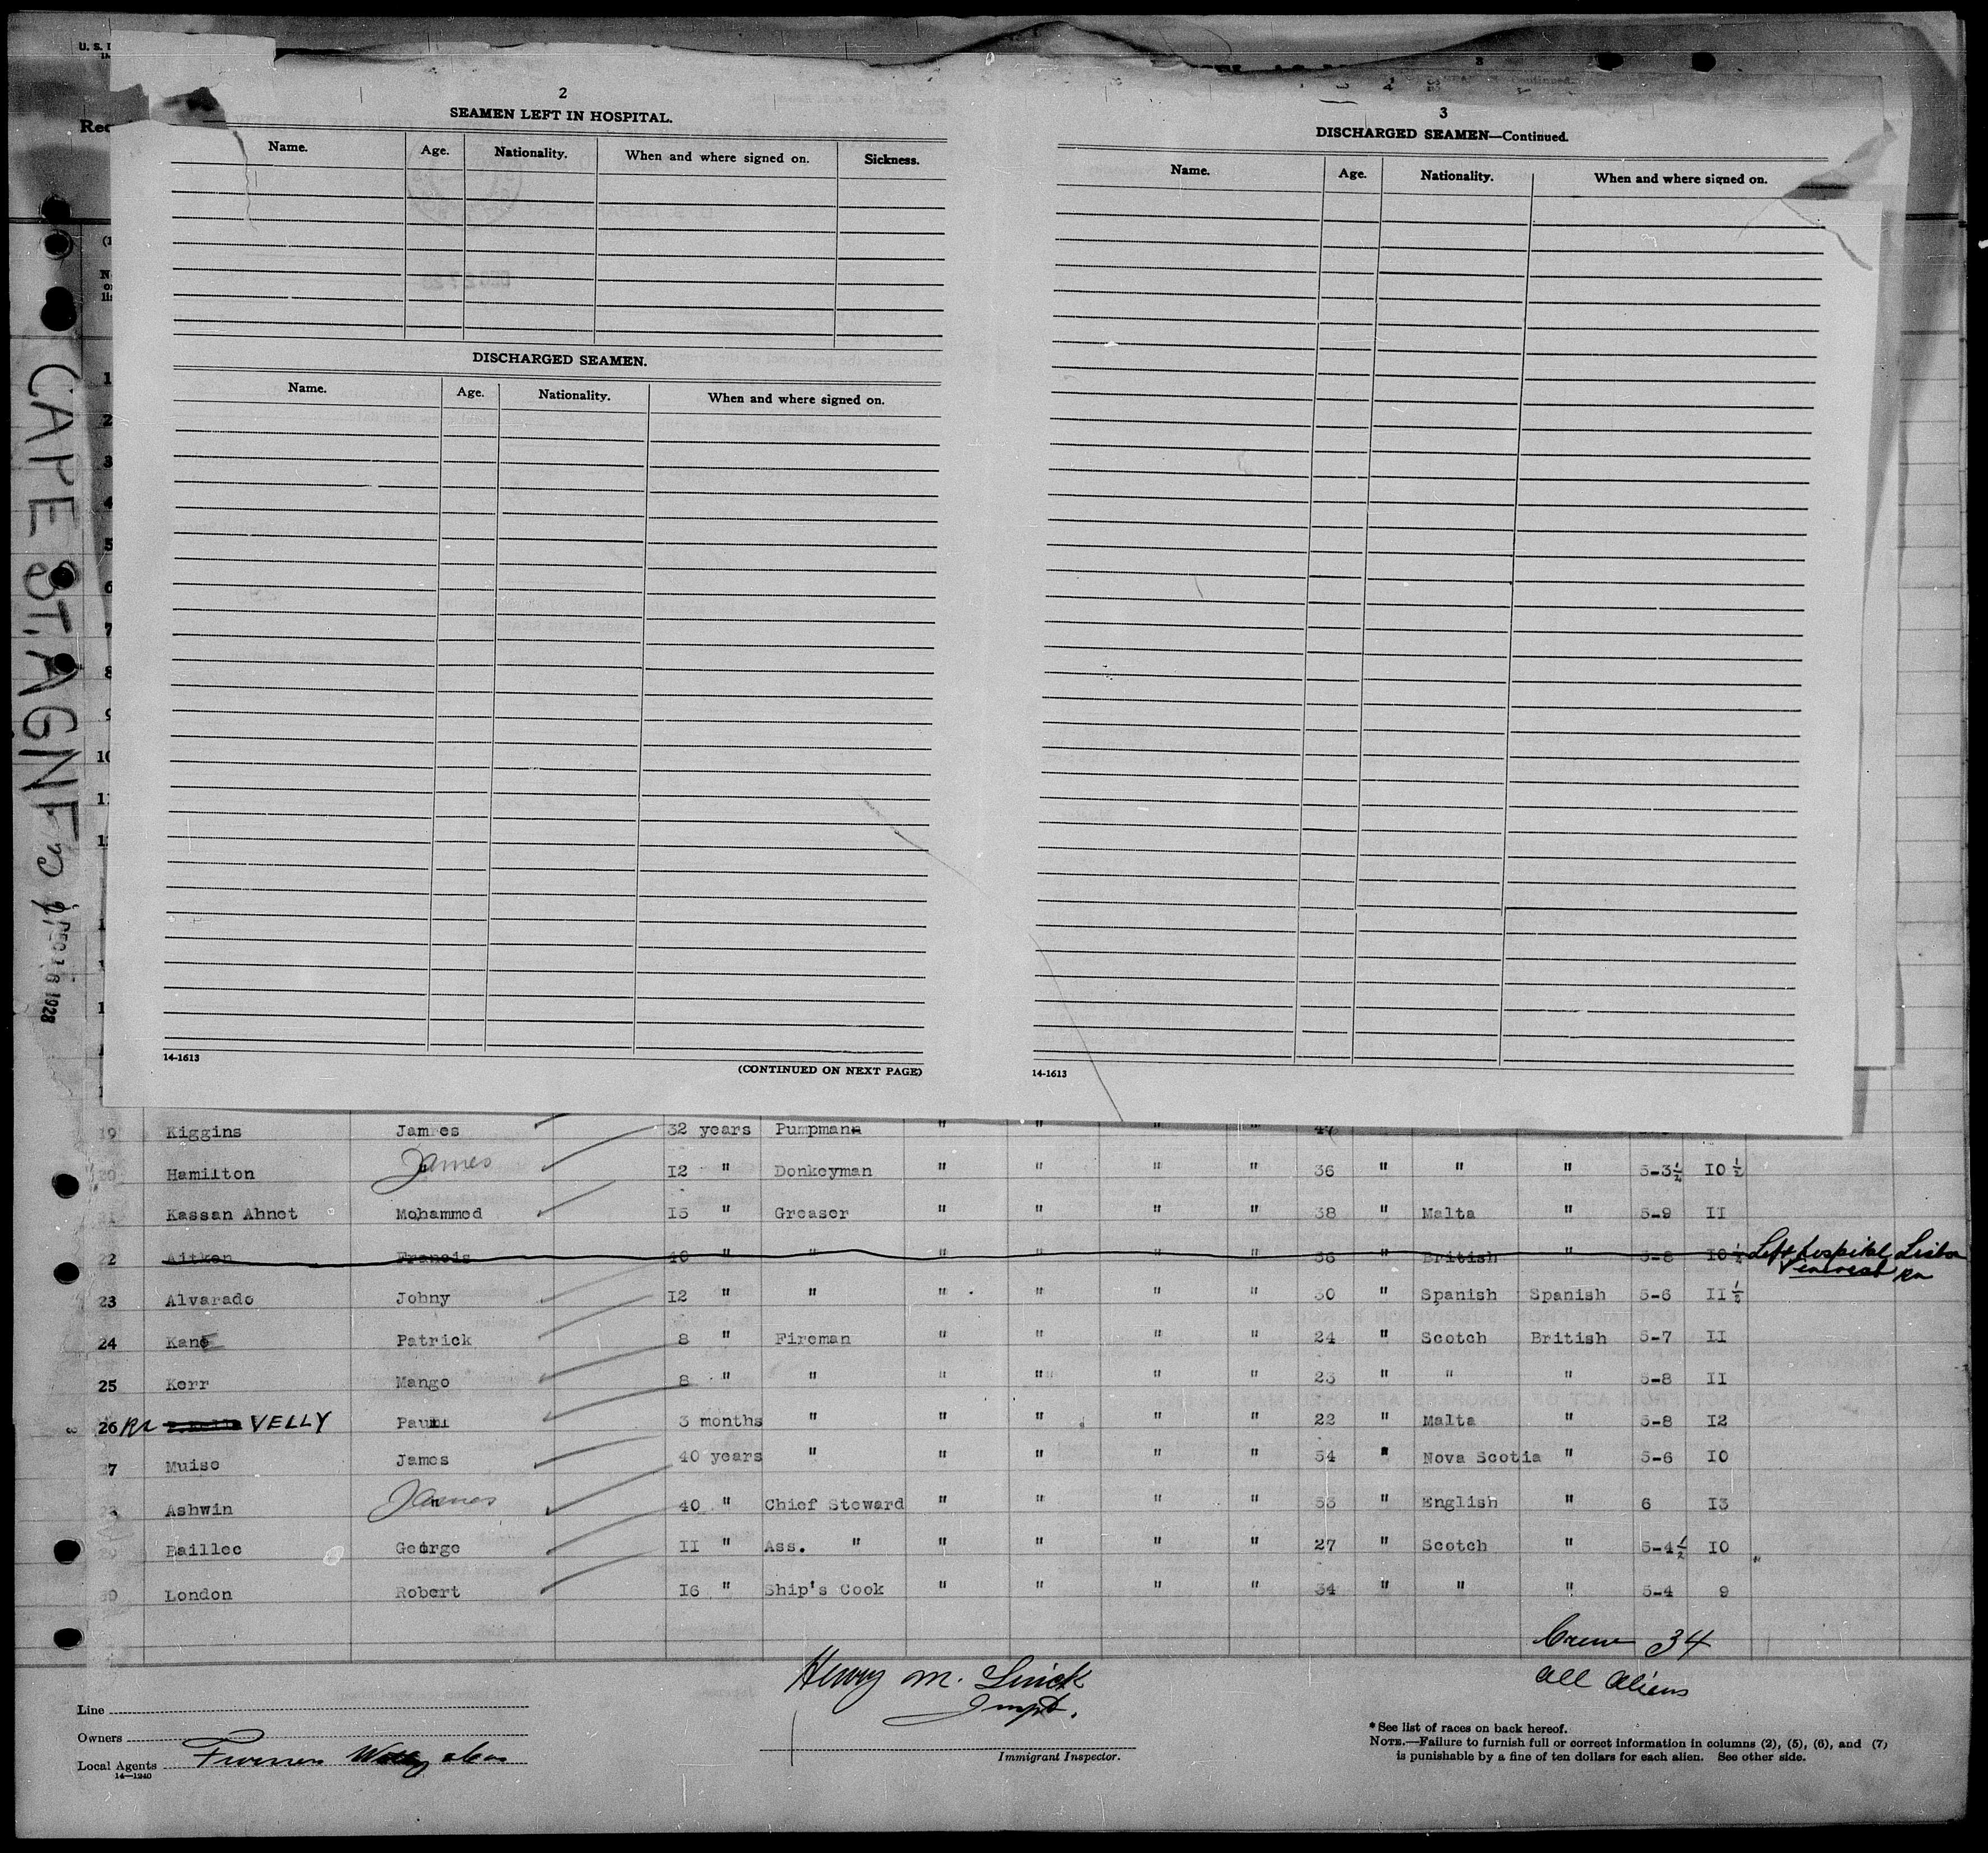 U. S. 
Rec
CAPE ST. AGNES
DEC 16 1928
2
SEAMEN LEFT IN HOSPITAL.
Name. Age. Nationality. When and where signed on. Sickness.
DISCHARGED SEAMEN.
Name. Age. Nationality. When and where signed on.
14-1613
(CONTINUED ON NEXT PAGE)
3
DISCHARGED SEAMEN—Continued.
Name. Age. Nationality. When and where signed on.
14-1613
1
2
3
4
5
6
7
8
9
10
11
19 Kiggins James 32 years Pumpman " " " " 47
20 Hamilton James 12 " Donkeyman " " " " 36 " " " 5-3½ 10½
21 Kassan Ahnet Mohammed 15 " Greaser " " " " 38 " Malta " 5-9 11
22 Aitken Francis 40 " " " " " " 56 " British " 5-8 10½ Left hospital Lisbon
23 Alvarado Johny 12 " " " " " " 30 " Spanish Spanish 5-6 11½
24 Kane Patrick 8 " Fireman " " " " 24 " Scotch British 5-7 11
25 Kerr Mango 8 " " " " " " 23 " " " 5-8 11
26 VELLY Paul 3 months " " " " " 22 " Malta " 5-8 12
27 Muise James 40 years " " " " " 54 " Nova Scotia " 5-6 10
28 Ashwin James 40 " Chief Steward " " " " 53 " English " 6 13
29 Baillee George 11 " Ass. " " " " " 27 " Scotch " 5-4½ 10
30 London Robert 16 " Ship's Cook " " " " 34 " " " 5-4 9
Crew 34
all aliens
Henry M.
Inspt.
Immigrant Inspector.
Line
Owners
Local Agents Furness Withy
14—1240
* See list of races on back hereof.
NOTE.—Failure to furnish full or correct information in columns (2), (5), (6), and (7)
is punishable by a fine of ten dollars for each alien. See other side.